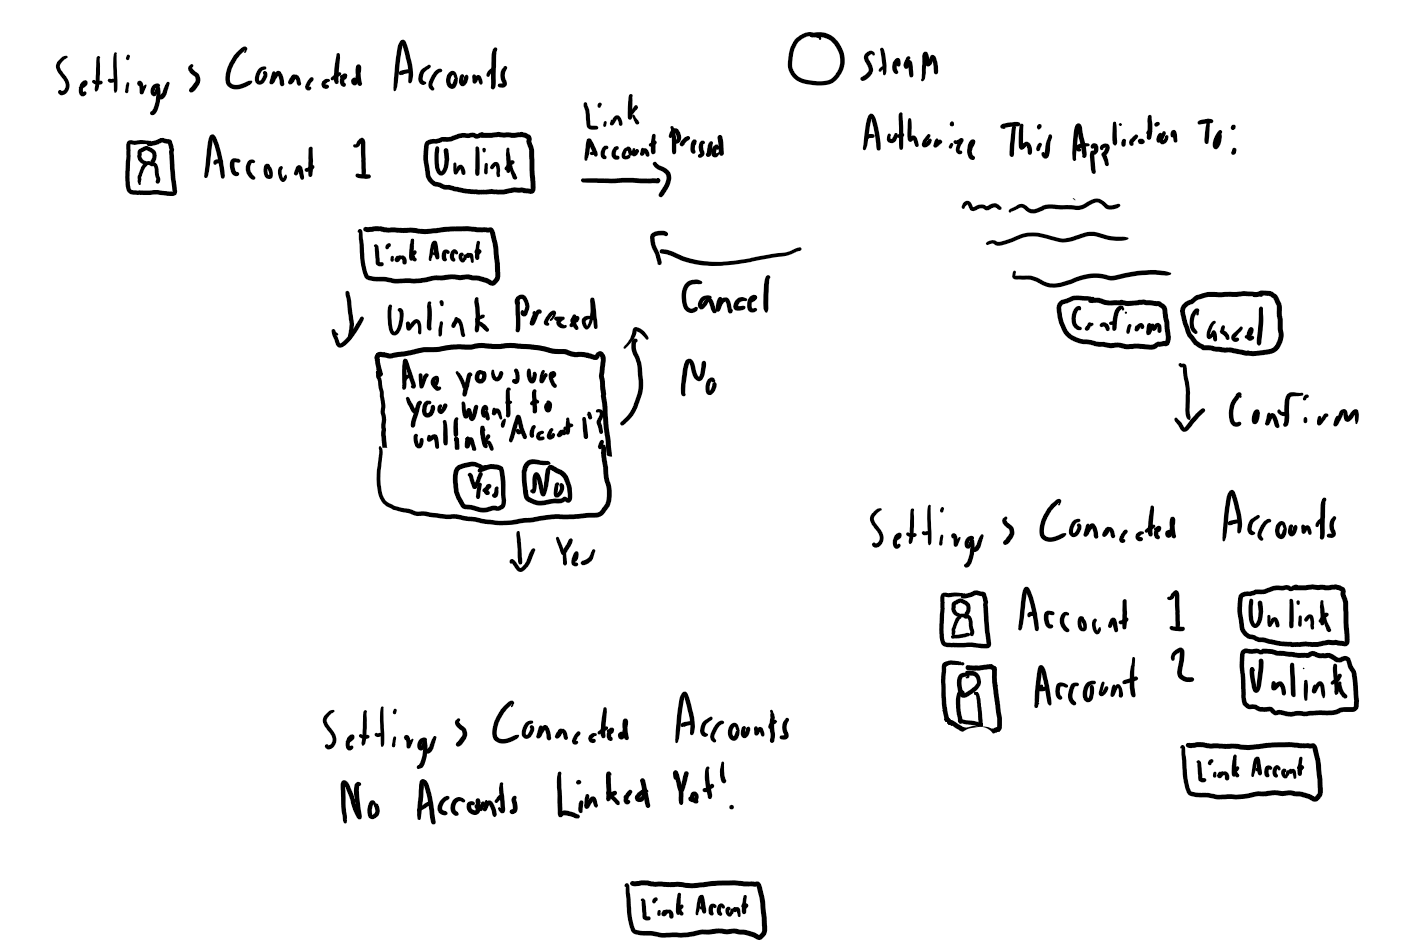 Settings > Connected Accounts
Account 1 Unlink
Link Account
Link
Account Pressed
Steam
Authorize This Application To:
Confirm Cancel
Cancel
Unlink Pressed
Are you sure
you want to
unlink 'Account 1'?
Yes No
No
Yes
Confirm
Settings > Connected Accounts
Account 1 Unlink
Account 2 Unlink
Link Account
Settings > Connected Accounts
No Accounts Linked Yet!
Link Account